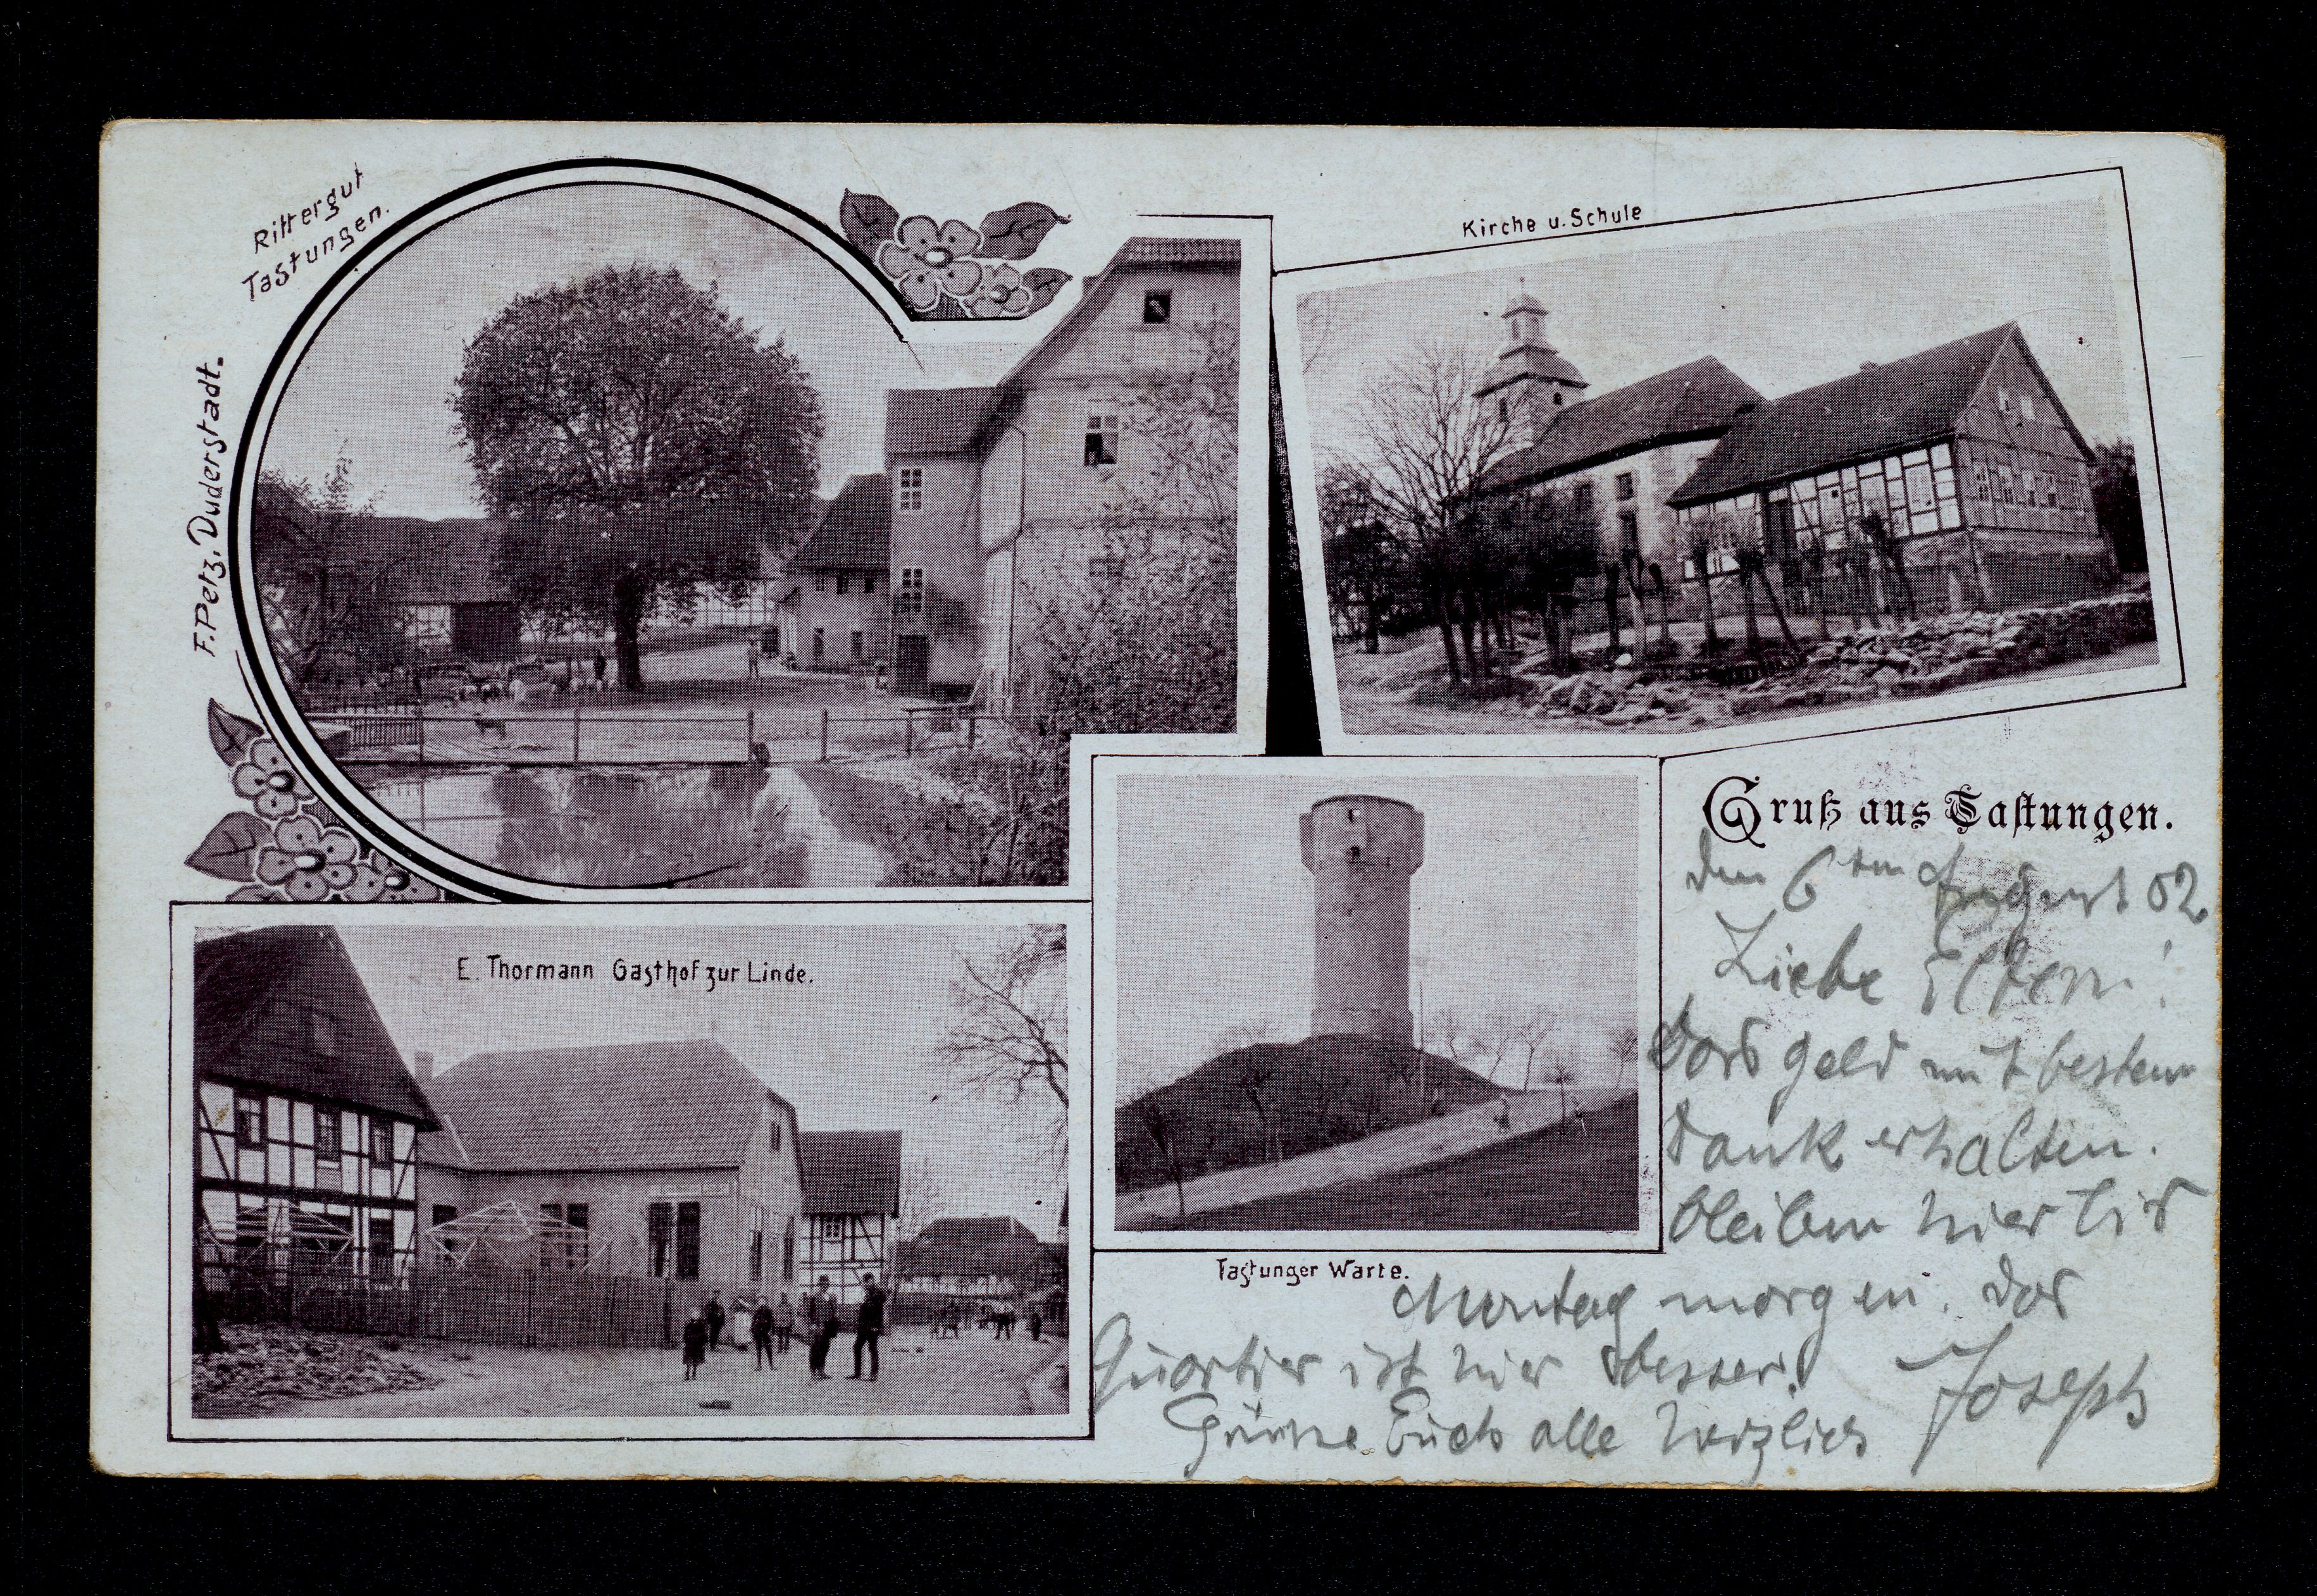 Rittergut
Tastungen.
F. Petz, Duderstadt.
Kirche u. Schule
Gruß aus Tastungen.
den 6ten August 02
Liebe Eltern!
Das Geld mit bestem
Dank erhalten.
bleiben hier bis
Montag morgen. Das
Quartier ist hier besser.
Grüsse Euch alle herzlich Joseph
Tastunger Warte.
E. Thormann Gasthof zur Linde.